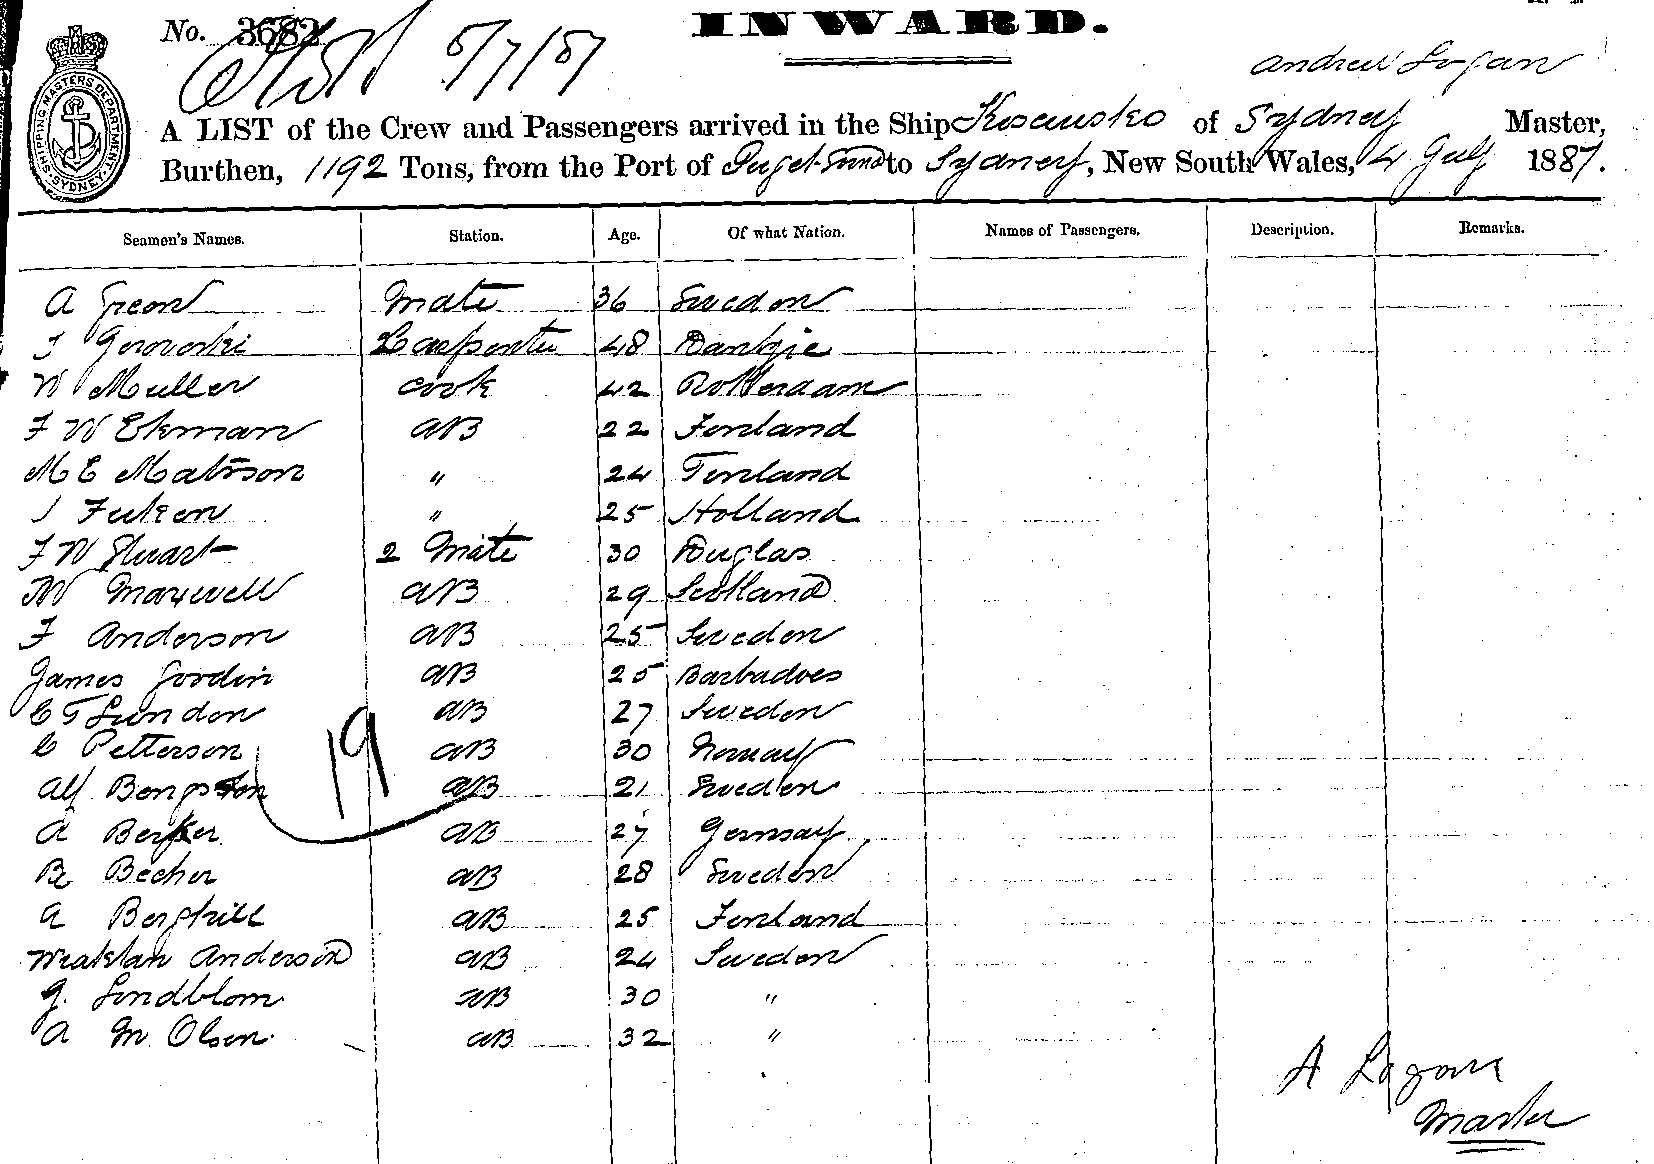 No. 3682
INWARD.
5/7/87
Andrew Logan
SHIPPING MASTERS DEPARTMENT SYDNEY
A LIST of the Crew and Passengers arrived in the Ship Kosciusko of Sydney Master,
Burthen, 1192 Tons, from the Port of Puget Sund to Sydney, New South Wales, 4 July 1887.
Seamen's Names. Station. Age. Of what Nation. Names of Passengers. Description. Remarks.
A Green Mate 36 Sweden
J Gorowski Carpenter 48 Dantzic
W Muller cook 42 Rotterdam
F W Ekman AB 22 Finland
M E Matsson " 24 Finland
J Fuken " 25 Holland
F W Stuart 2 Mate 30 Duglas
W Maxwell AB 29 Scotland
F Anderson AB 25 Sweden
James Goodin AB 25 Barbadoes
C T Lundon AB 27 Sweden
C Petterson AB 30 Norway
19
Alf Bengston AB 21 Sweden
A Berker AB 27 Germay
B Becher AB 28 Sweden
A Berghill AB 25 Finland
Anderson AB 24 Sweden
G. Lindblom AB 30 "
A M Olsen AB 32 "
A Logan
Master